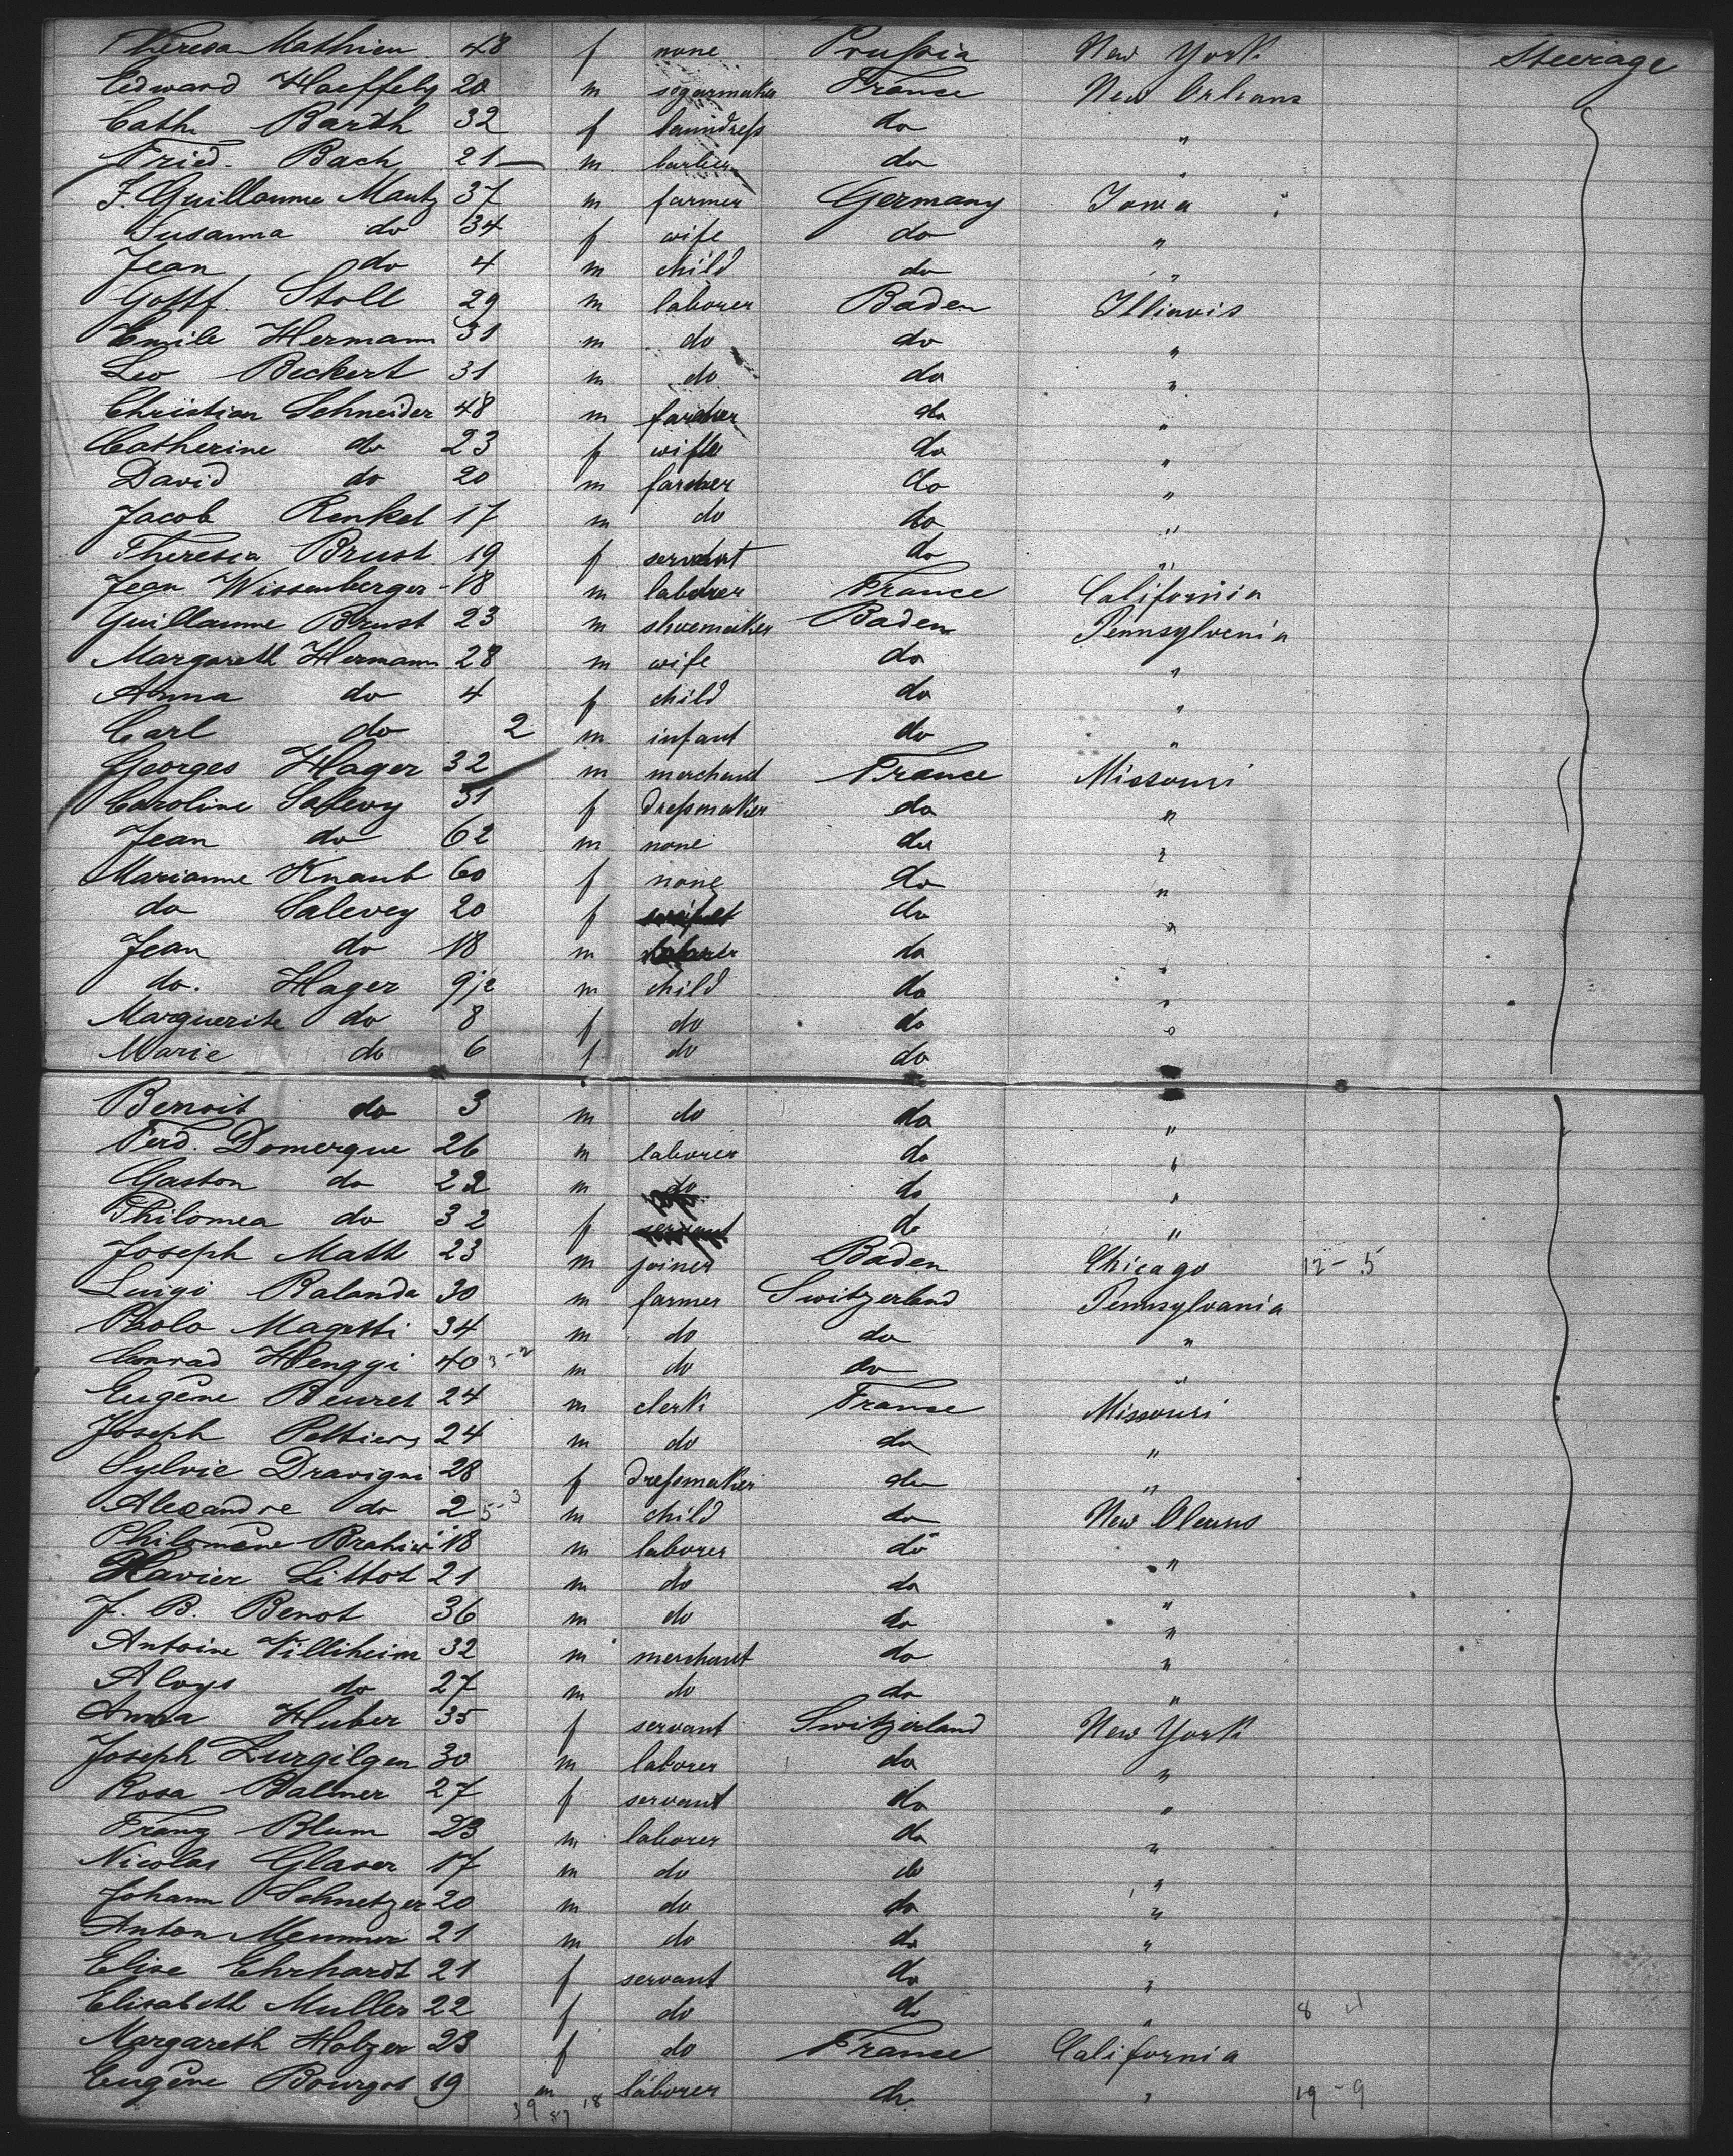 Theresa Mathieu 48 f none Prussia New York Steerage
Edward Haeffely 20 m segarmaker France New Orleans
Cath. Barth 32 f laundress do "
Fried. Bach 21 m barber do "
J. Guillaume Mautz 37 m farmer Germany Iowa
Susanna do 34 f wife do "
Jean do 4 m child do "
Gottf. Stoll 29 m laborer Baden Illinois
Emile Hermann 31 m do do "
Leo Beckert 31 m do do "
Christian Schneider 48 m farmer do "
Catherine do 23 f wife do "
David do 20 m farmer do "
Jacob Renkel 17 m do do "
Theresia Brust 19 f servant do "
Jean Wissenberger 18 m laborer France California
Guillaume Brust 23 m shoemaker Baden Pennsylvenia
Margareth Hermann 28 m wife do "
Anna do 4 f child do "
Carl do 2 m infant do "
Georges Hager 32 m merchant France Missouri
Caroline Salevy 31 f dressmaker do "
Jean do 62 m none do "
Marianne Knaub 60 f none do "
do Salevey 20 f do "
Jean do 18 m do "
do. Hager 9 1/2 m child do "
Marguerite do 8 f do do "
Marie do 6 f do do
Benoit do 3 m do do "
Ferd. Domergue 26 m laborer do "
Gaston do 22 m do do "
Philomea do 32 f servant do "
Joseph Math 23 m joiner Baden Chicago 12-5
Luigi Ralanda 30 m farmer Switzerland Pennsylvania
Paolo Magetti 34 m do do "
Conrad Henggi 40 m do do "
Eugène Beuret 24 m clerk France Missouri
Joseph Peltiers 24 m do do "
Sylvie Dravigni 28 f dressmaker do "
Alexandre do 2 m child do New Oleans
Philomène 18 m laborer do "
Xavier Littot 21 m do do "
J. B. Benot 36 m do do "
Antoine Villiheim 32 m merchant do "
Aloys do 27 m do do "
Anna Huber 35 f servant Switzerland New York
Joseph Zurgilgen 30 m laborer do "
Rosa Balmer 27 f servant do "
Franz Blum 23 m laborer do "
Nicolas Glaser 17 m do do "
Johann Schnetzer 20 m do do "
Anton 21 m do do "
Elise Ehrhardt 21 f servant do "
Elisabeth Muller 22 f do do " 8
Margareth Holzer 23 f do France California
Eugène Bourgot 19 m laborer do " 19-9
39 18